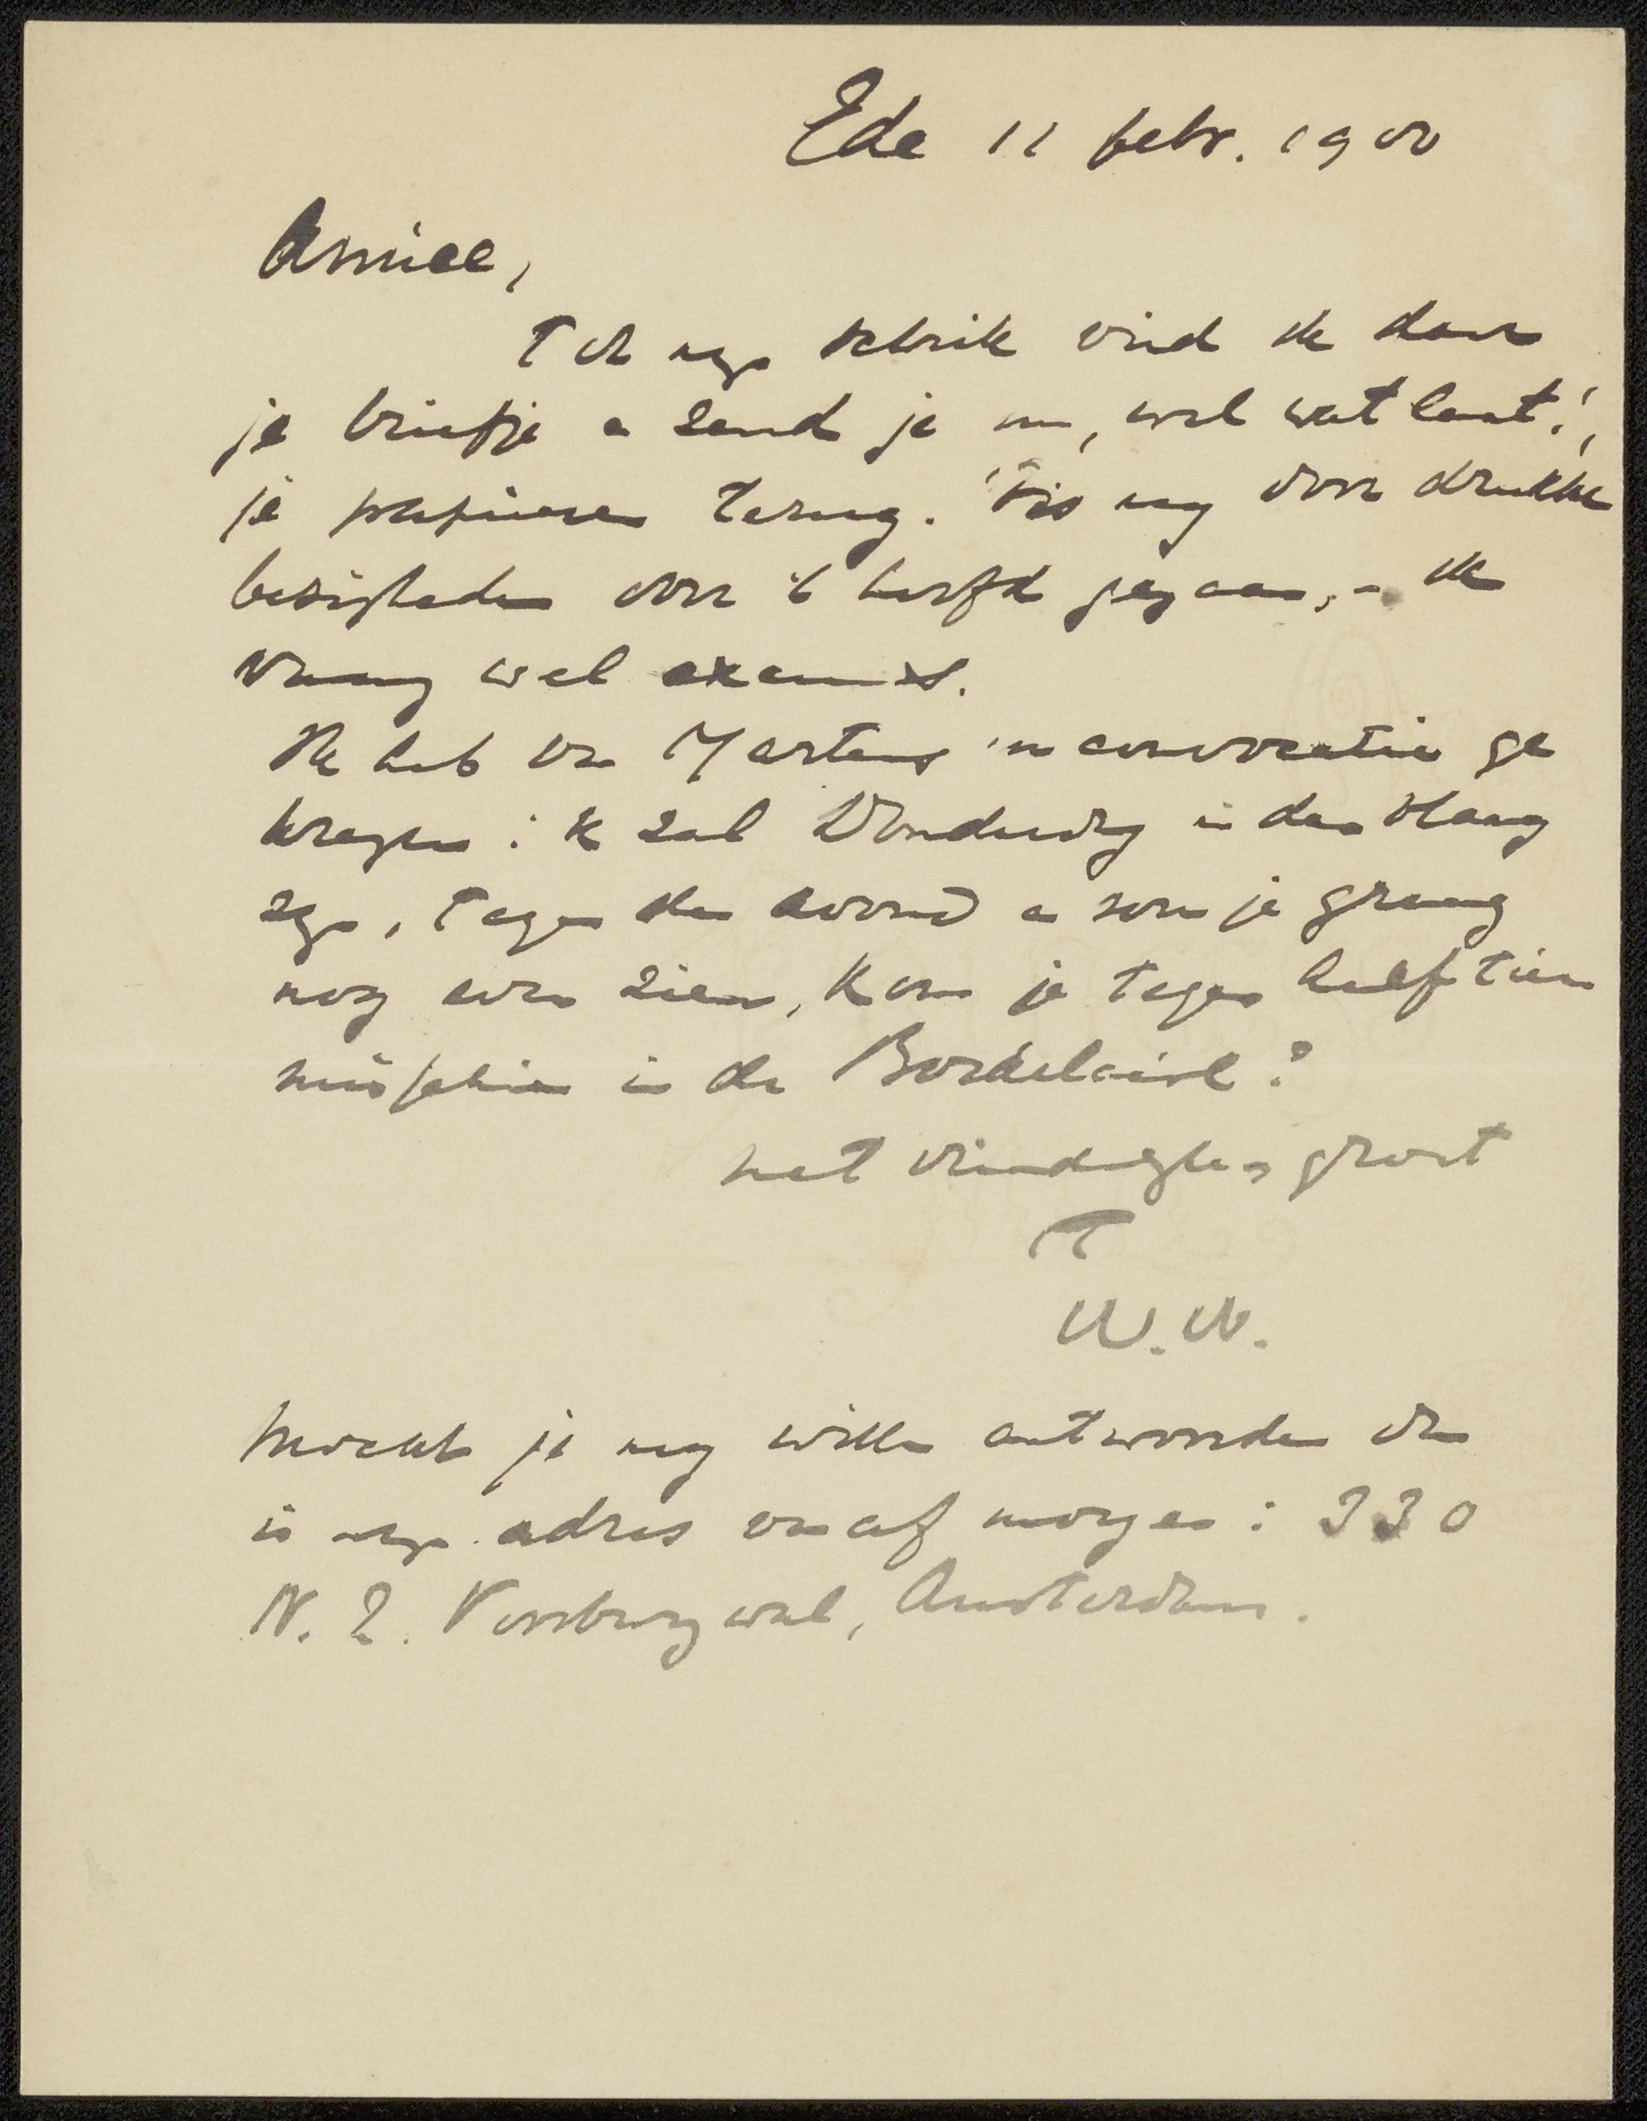 Ede 11 febr. 1900
Amice,
Tot myn schrik vind ik daar
je briefje en zend je nu, wel wat laat!,
je papieren terug. 't Is my door drukke
bezigheden door 't hoofd gegaan, - ik
vraag wel excuus.
Ik heb van Martens 'n convocatie ge
kregen: ik zal Donderdag in den Haag
zyn, tegen den avond en zou je graag
nog even zien, kom je tegen half tien
misschien in de Bordelaise?
met vriendelyken groet
T
W.W.
Mocht je my willen antwoorden dan
is myn adres vanaf morgen: 330
N. Z. Voorburgwal, Amsterdam.